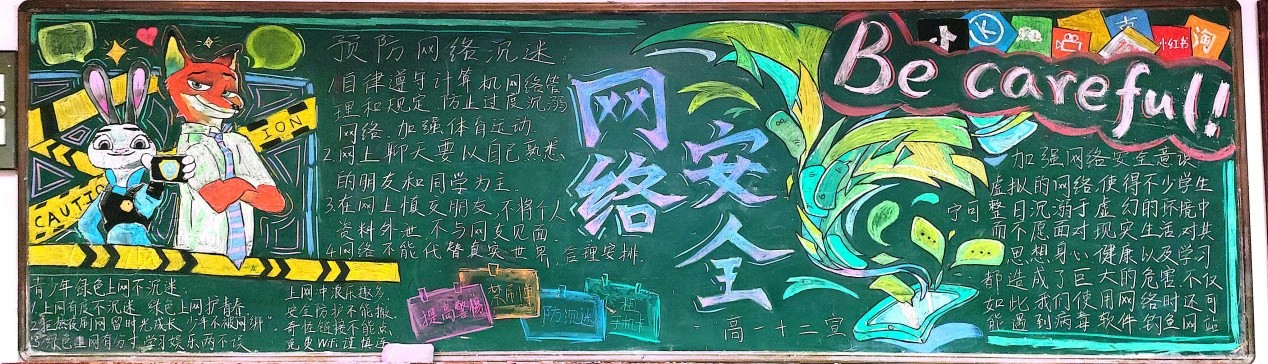 CAUTION
ION
预防网络沉迷:
1.自律遵守计算机网络管
理和规定.防止过度沉溺
网络.加强体育运动.
2.网上聊天要以自己熟悉
的朋友和同学为主.
3.在网上慎交朋友,不将个人
资料外泄.不与网友见面.
4.网络不能代替真实世界.合理安排.
青少年绿色上网不沉迷.
1.上网有度不沉迷 绿色上网护青春
3.绿色上网有分寸,学习娱乐两不误
上网冲浪乐趣多
安全防护不能撤
奇怪链接不能点
免费WiFi谨慎连
网络
安全
提高警惕
防沉迷
高一十二宣
Be careful!
小红书
淘
加强网络安全意识
虚拟的网络.使得不少学生
宁可整日沉溺于虚幻的环境中
而不愿面对现实生活.对其
思想身心健康以及学习
都造成了巨大的危害.不仅
如此,我们使用网络时还可
能遇到病毒软件.钓鱼网站